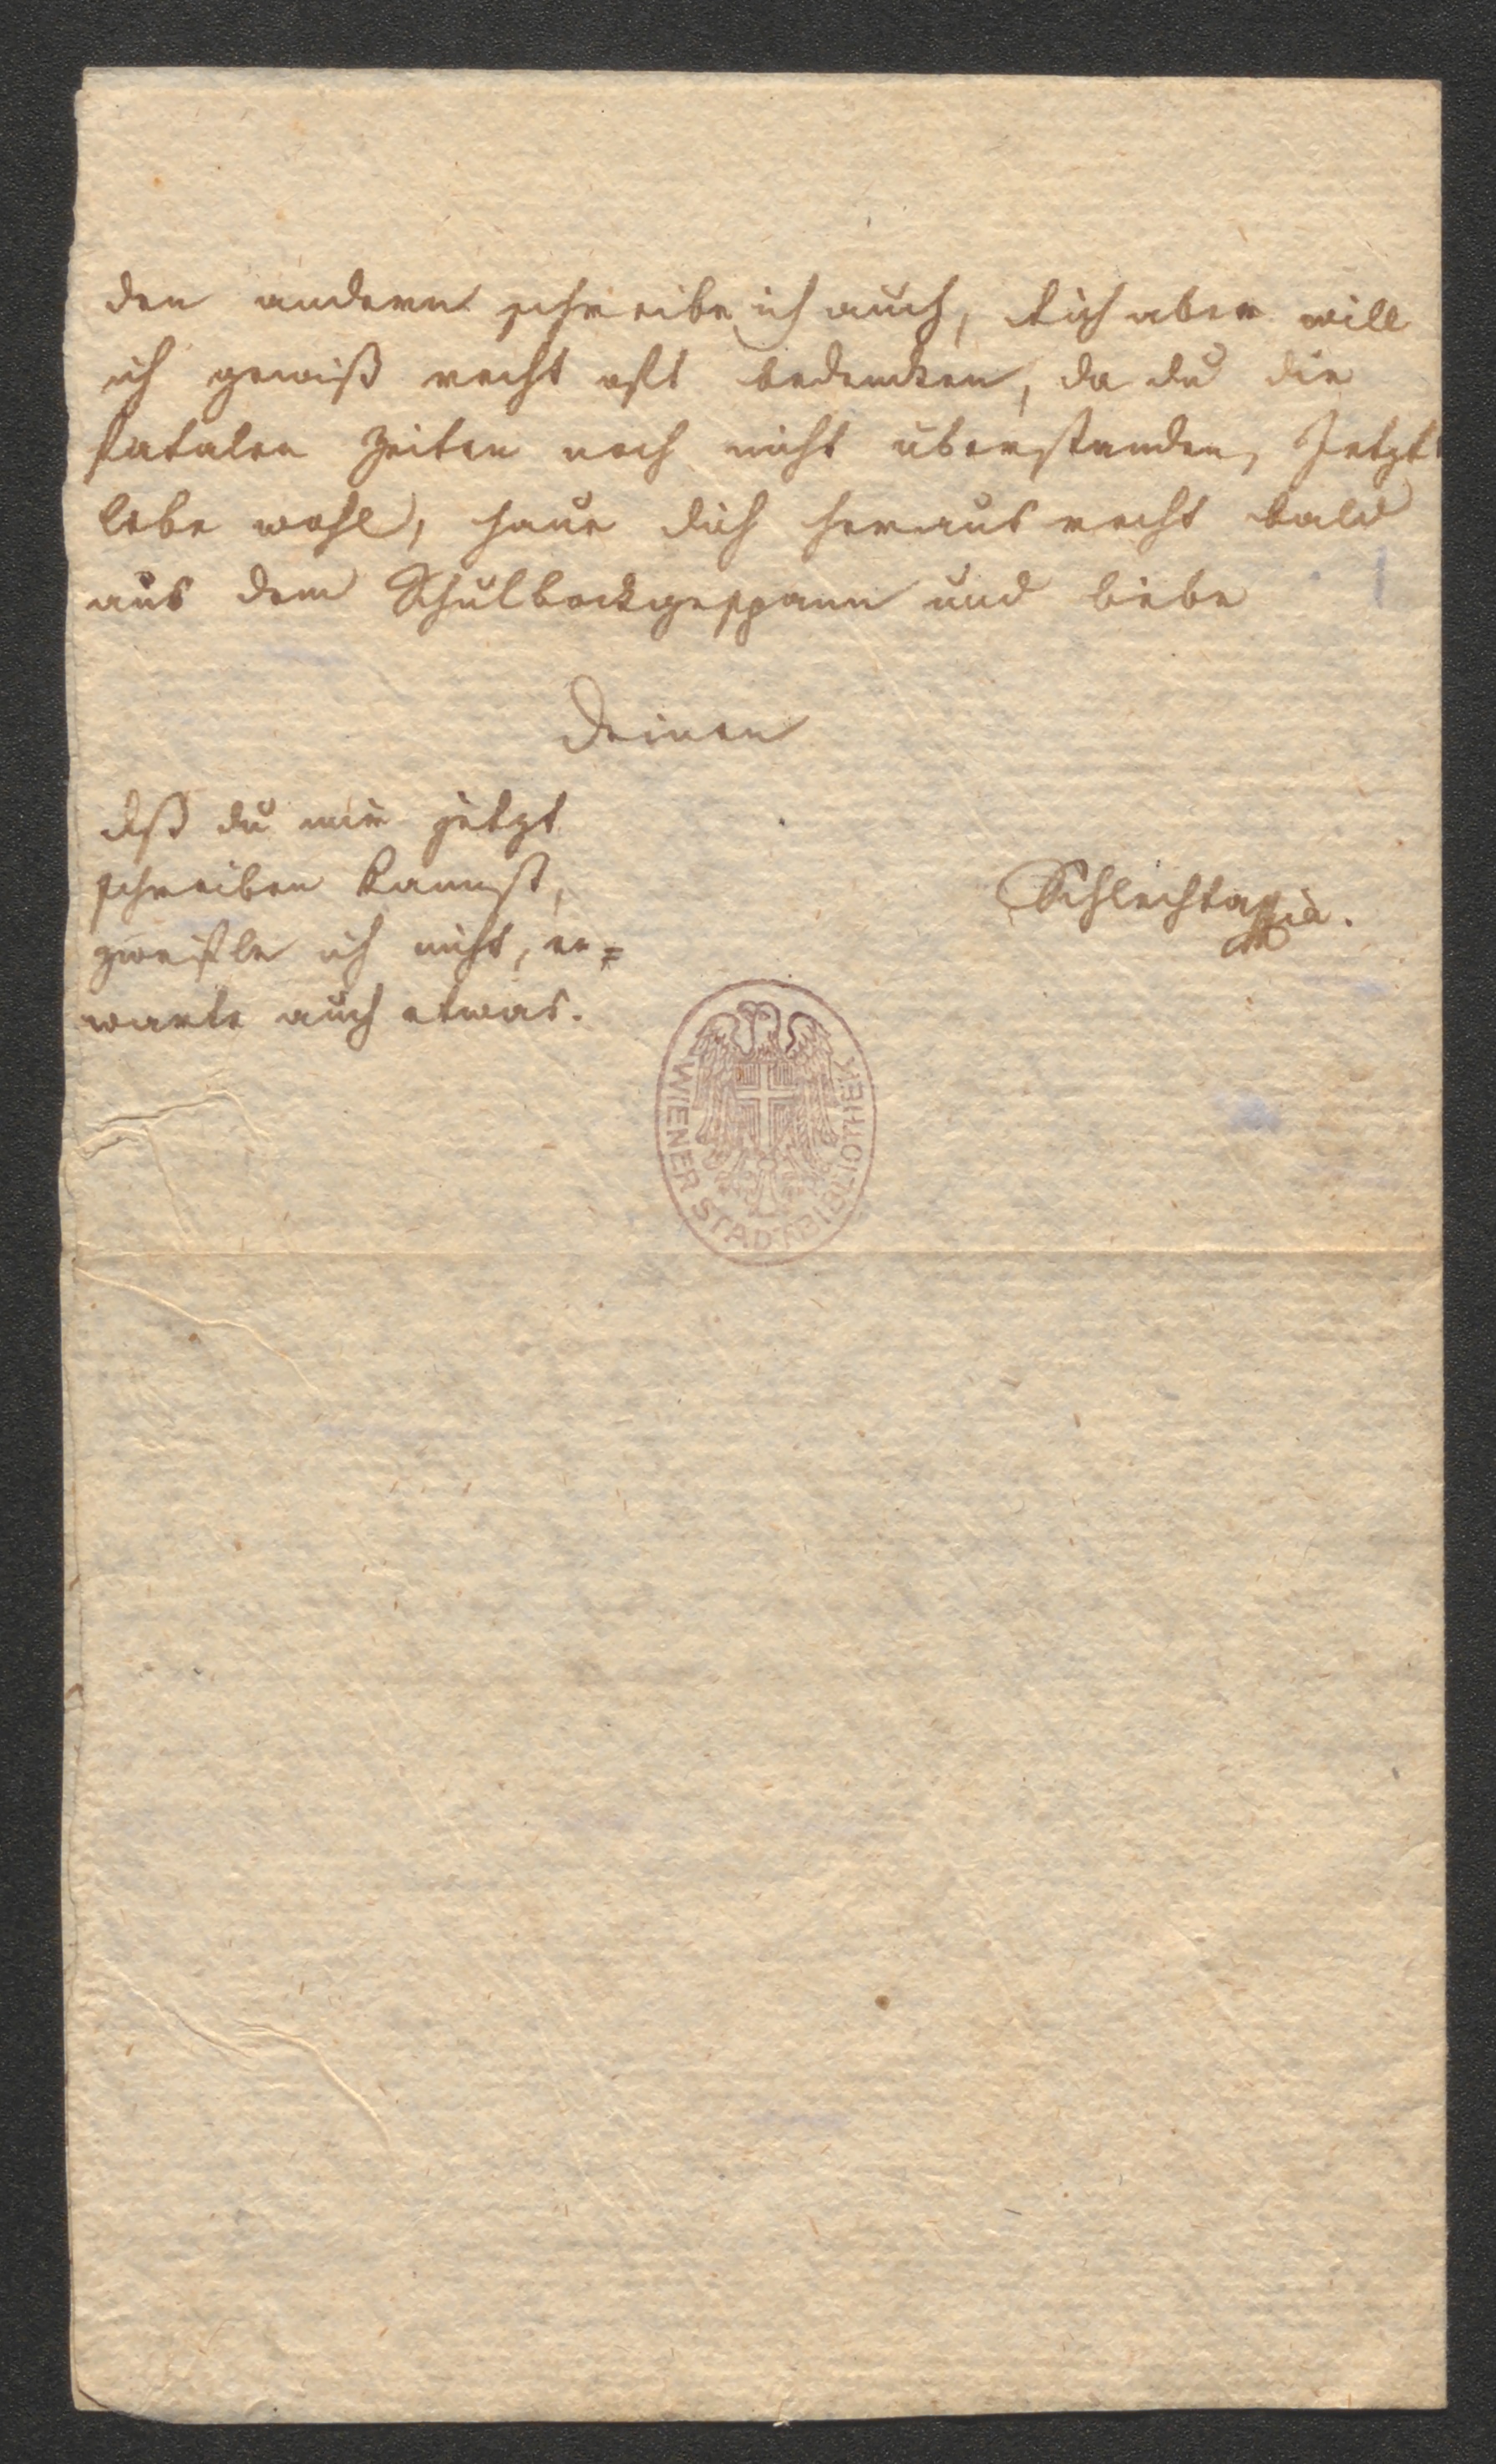 den andern schreibe ich auch, dich aber will
ich gewiß recht oft bedencken, da du die
fatalen Zeiten noch nicht überstanden, Jetzt
lebe wohl, haue dich heraus recht bald
aus dem Schulbockgespann und liebe
Deinen
dß du mir jetzt
schreiben kannst,
zweifle ich nicht, er=
warte auch etwas.
Schlechta
WIENER STADTBIBLIOTHEK